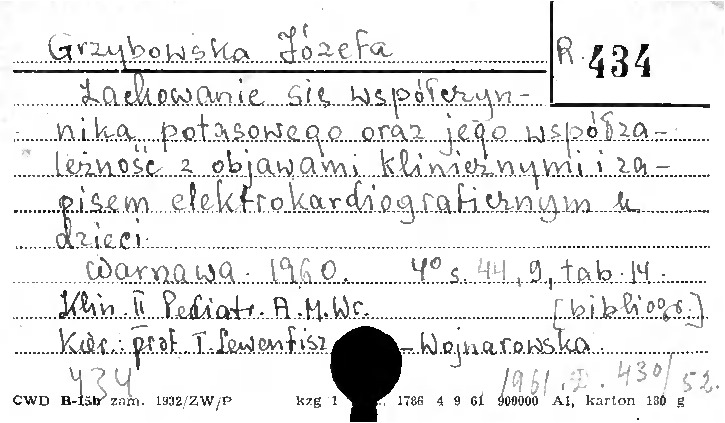 Grzybowska Józefa
R. 434
Zachowanie się współczyn-
nika potasowego oraz jego współza-
leżność z objawami klinicznymi i za-
pisem elektrokardiograficznym u
dzieci.
Warszawa. 1960. 4° s. 44, 9, tab. 14.
Klin. II Pediatr. A.M. Wr. [bibliogr.]
Kier.: prof. T. Lewenfisz - Wojnarowska.
434 1961. D. 430/52.
CWD B-15b zam. 1932/ZW/P kzg 1 1786 4 9 61 900000 A1, karton 180 g